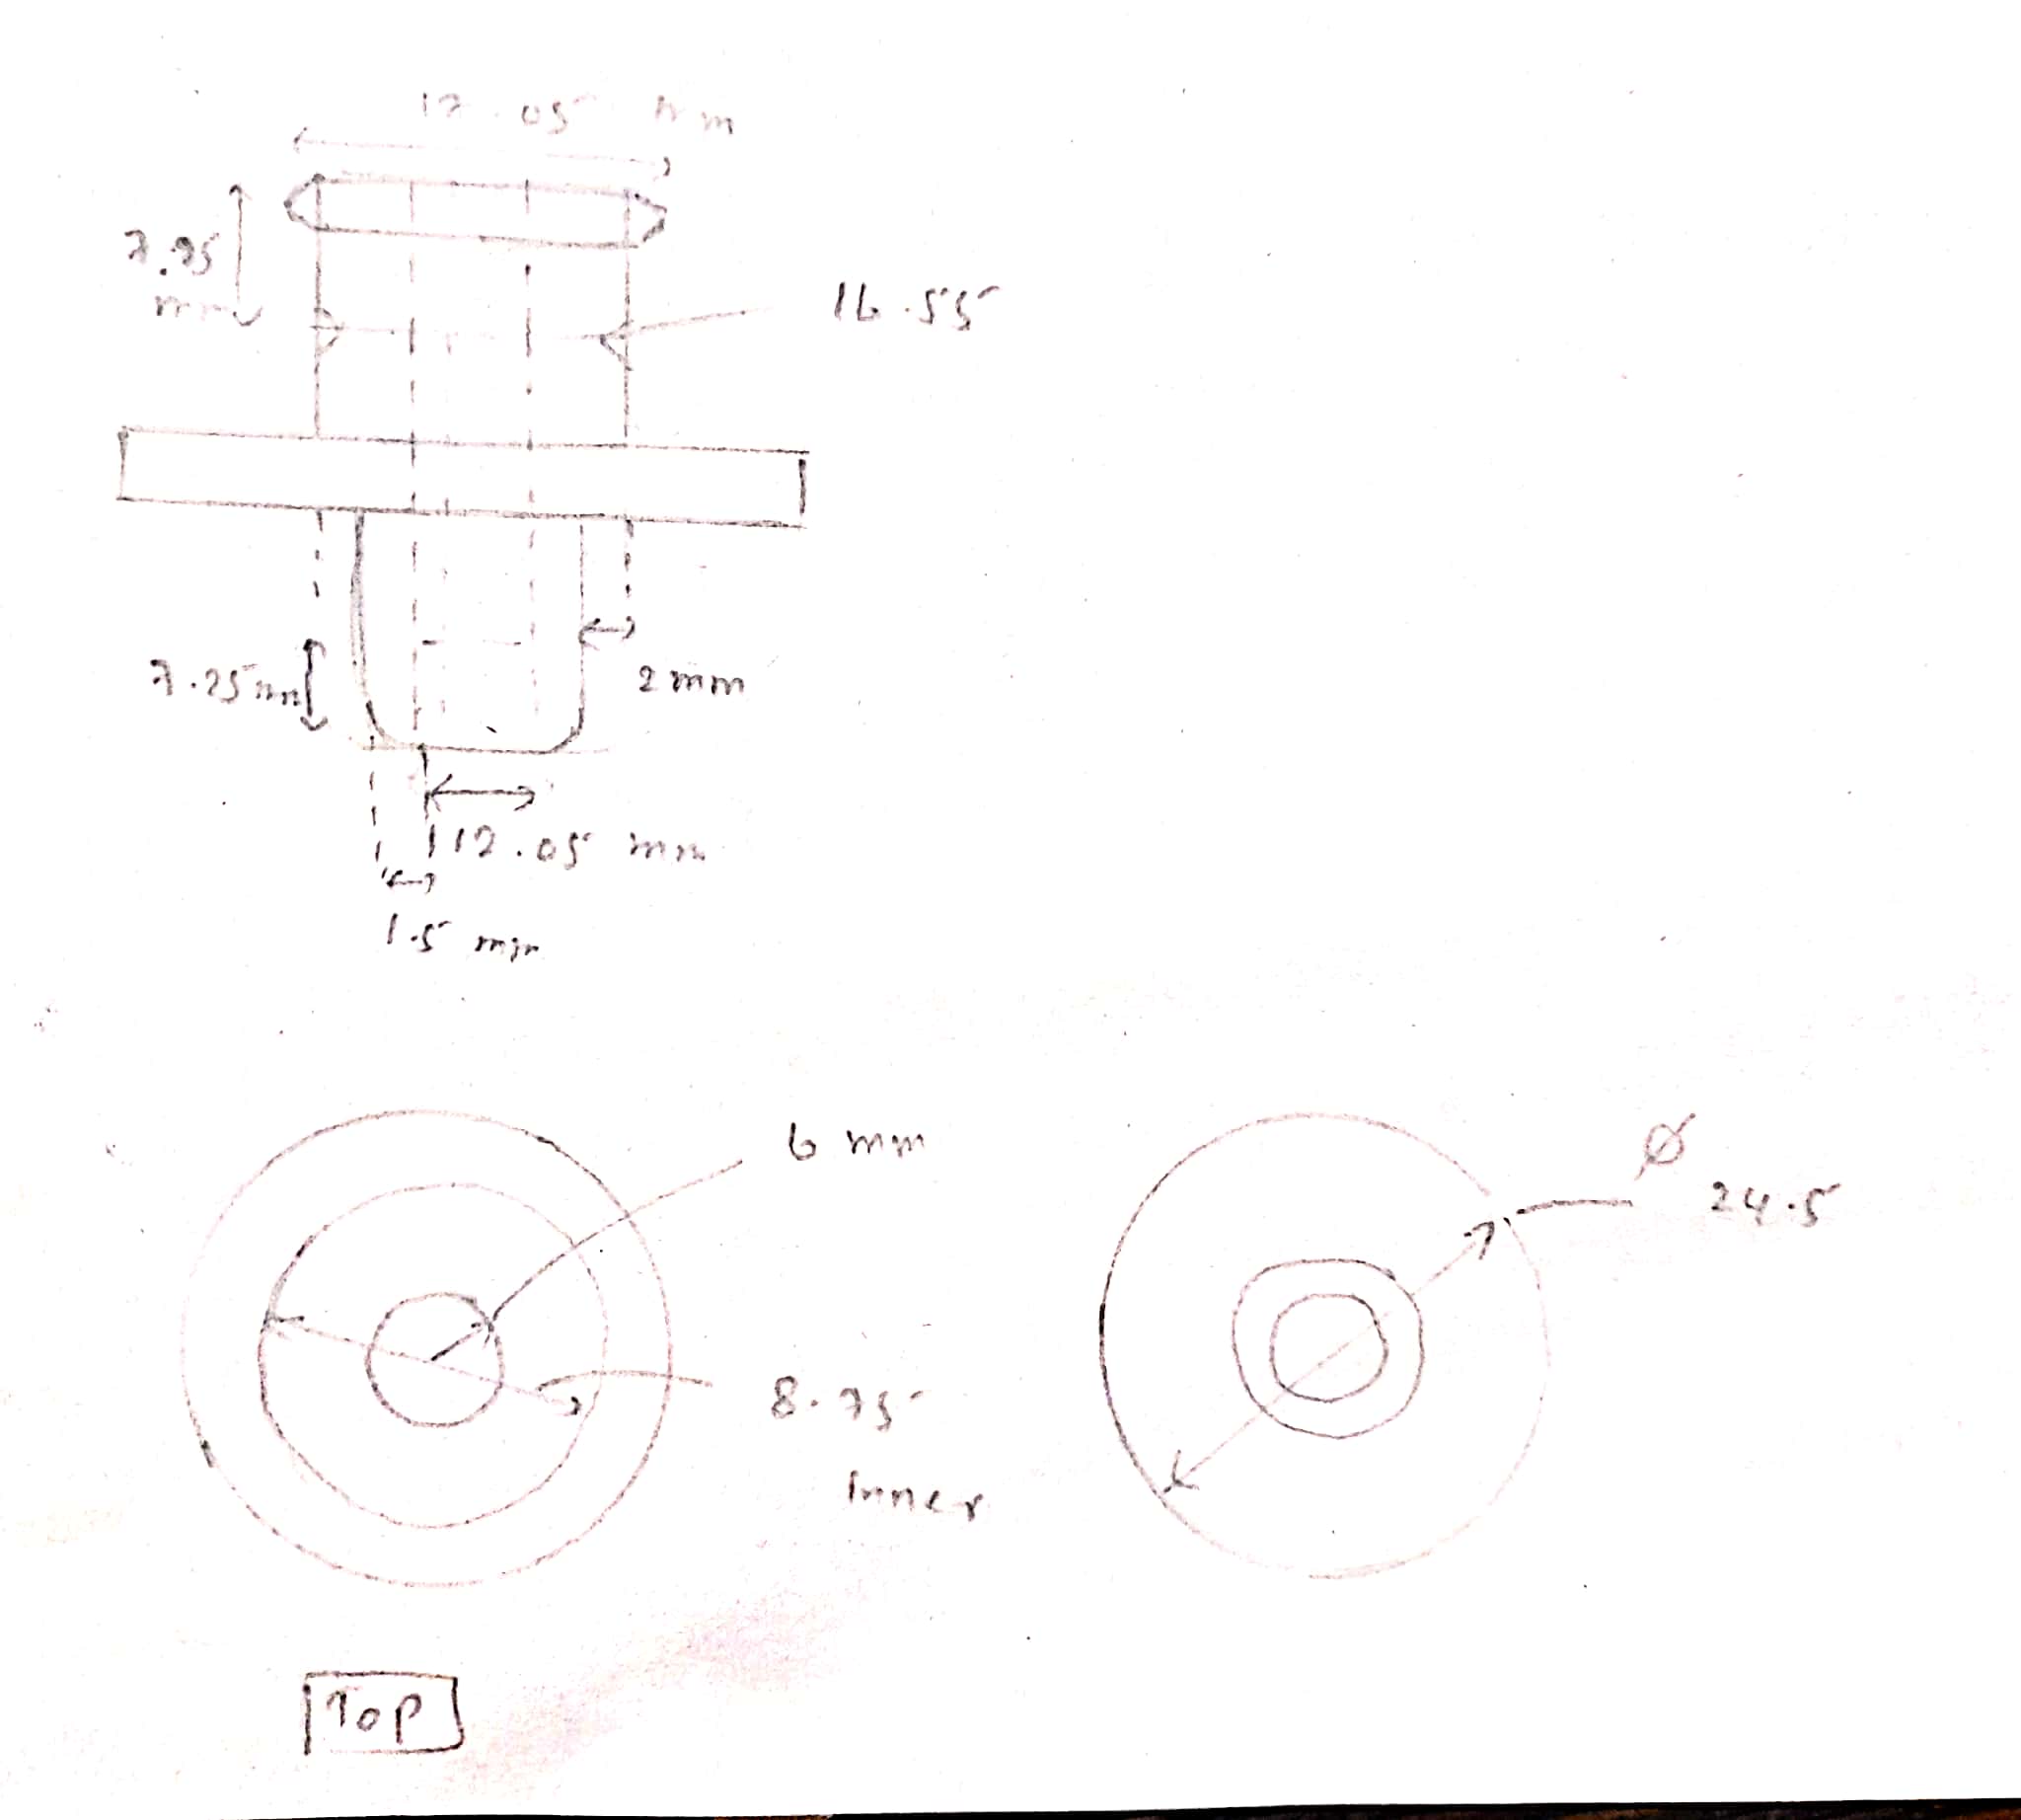 17.05 mm
7.95
mm
16.55
7.25 mm
2 mm
12.05 mm
1.5 mm
6 mm
Ø
24.5
8.75
Inner
TOP